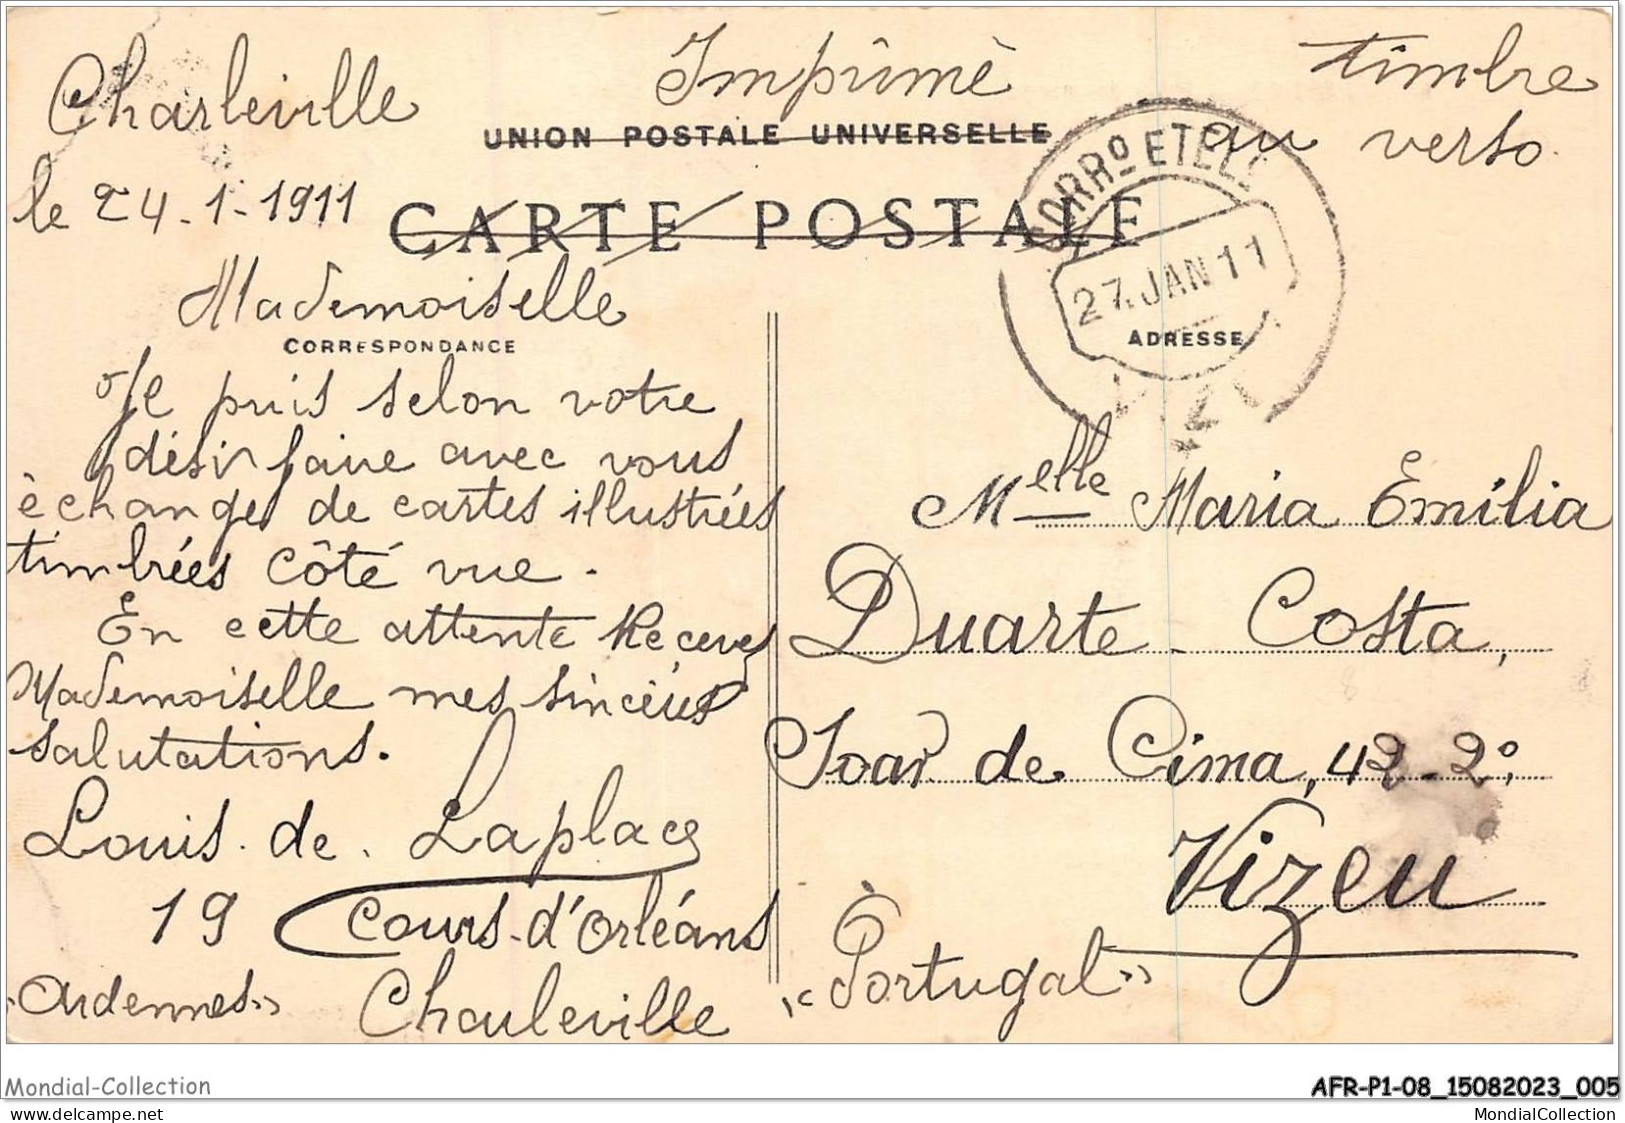 Charleville
le 24-1-1911
Imprimé
timbre
au verso.
UNION POSTALE UNIVERSELLE
CARTE POSTALE
CORRº E TELº
27. JAN 11
Mademoiselle
CORRESPONDANCE
Je puis selon votre
désir faire avec vous
èchanges de cartes illustrées
timbrées côté vue.
En cette attente Recevez
Mademoiselle mes sincères
salutations.
Louis de Laplace
19 Cours d'Orléans
"Ardennes" Charleville
ADRESSE
Melle Maria Emilia
Duarte Costa,
Soar de Cima, 42-2º,
Vizeu
"Portugal"
Mondial-Collection
AFR-P1-08_15082023_005
©delcampe.net
MondialCollection